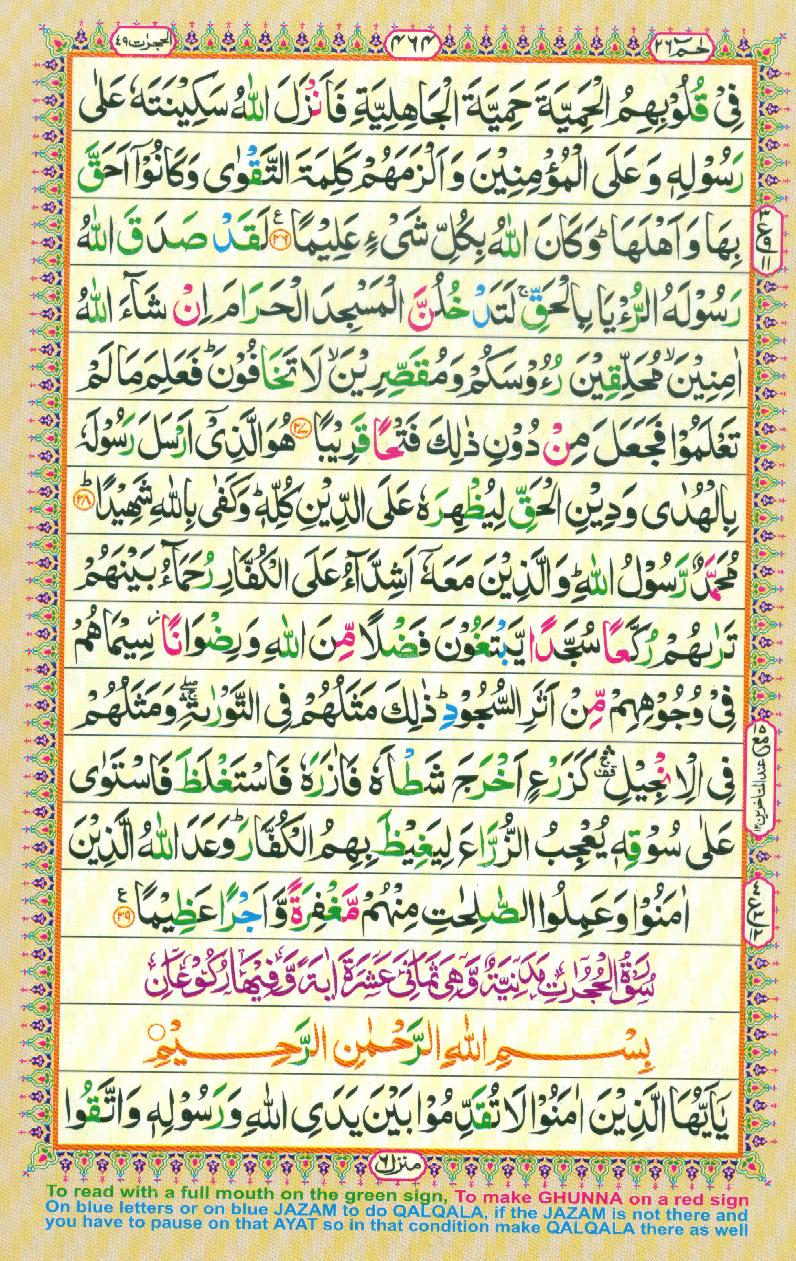 حٰمٓ ٢٦
٤٦٤
الحجرٰت ٤٩
فِیْ قُلُوْبِهِمُ الْحَمِیَّةَ حَمِیَّةَ الْجَاهِلِیَّةِ فَاَنْزَلَ اللّٰهُ سَكِیْنَتَهٗ عَلٰی
رَسُوْلِهٖ وَ عَلَی الْمُؤْمِنِیْنَ وَ اَلْزَمَهُمْ كَلِمَةَ التَّقْوٰی وَ كَانُوْۤا اَحَقَّ
بِهَا وَ اَهْلَهَا ؕ وَ كَانَ اللّٰهُ بِكُلِّ شَیْءٍ عَلِیْمًا ۟۠ ﴿٢٦﴾ لَقَدْ صَدَقَ اللّٰهُ
رَسُوْلَهُ الرُّءْیَا بِالْحَقِّ ۚ لَتَدْخُلُنَّ الْمَسْجِدَ الْحَرَامَ اِنْ شَآءَ اللّٰهُ
اٰمِنِیْنَ ۙ مُحَلِّقِیْنَ رُءُوْسَكُمْ وَ مُقَصِّرِیْنَ ۙ لَا تَخَافُوْنَ ؕ فَعَلِمَ مَا لَمْ
تَعْلَمُوْا فَجَعَلَ مِنْ دُوْنِ ذٰلِكَ فَتْحًا قَرِیْبًا ﴿٢٧﴾ هُوَ الَّذِیْۤ اَرْسَلَ رَسُوْلَهٗ
بِالْهُدٰی وَ دِیْنِ الْحَقِّ لِیُظْهِرَهٗ عَلَی الدِّیْنِ كُلِّهٖ ؕ وَ كَفٰی بِاللّٰهِ شَهِیْدًا ؕ ﴿٢٨﴾
مُحَمَّدٌ رَّسُوْلُ اللّٰهِ ؕ وَ الَّذِیْنَ مَعَهٗۤ اَشِدَّآءُ عَلَی الْكُفَّارِ رُحَمَآءُ بَیْنَهُمْ
تَرٰىهُمْ رُكَّعًا سُجَّدًا یَّبْتَغُوْنَ فَضْلًا مِّنَ اللّٰهِ وَ رِضْوَانًا ؗ سِیْمَاهُمْ
فِیْ وُجُوْهِهِمْ مِّنْ اَثَرِ السُّجُوْدِ ؕ ذٰلِكَ مَثَلُهُمْ فِی التَّوْرٰىةِ ۛۖۚ وَ مَثَلُهُمْ
فِی الْاِنْجِیْلِ ۛ۫ۚ كَزَرْعٍ اَخْرَجَ شَطْاَهٗ فَاٰزَرَهٗ فَاسْتَغْلَظَ فَاسْتَوٰی
عَلٰی سُوْقِهٖ یُعْجِبُ الزُّرَّاعَ لِیَغِیْظَ بِهِمُ الْكُفَّارَ ؕ وَعَدَ اللّٰهُ الَّذِیْنَ
اٰمَنُوْا وَ عَمِلُوا الصّٰلِحٰتِ مِنْهُمْ مَّغْفِرَةً وَّ اَجْرًا عَظِیْمًا ۟۠ ﴿٢٩﴾
سُوْرَةُ الْحُجُرٰتِ مَدَنِیَّةٌ وَّ هِیَ ثَمَانِیَ عَشَرَةَ اٰیَةً وَّ فِیْهَا رُكُوْعَانِ
بِسْمِ اللّٰهِ الرَّحْمٰنِ الرَّحِیْمِ
یٰۤاَیُّهَا الَّذِیْنَ اٰمَنُوْا لَا تُقَدِّمُوْا بَیْنَ یَدَیِ اللّٰهِ وَ رَسُوْلِهٖ وَ اتَّقُوا
منزل ٦
To read with a full mouth on the green sign, To make GHUNNA on a red sign
On blue letters or on blue JAZAM to do QALQALA, if the JAZAM is not there and
you have to pause on that AYAT so in that condition make QALQALA there as well